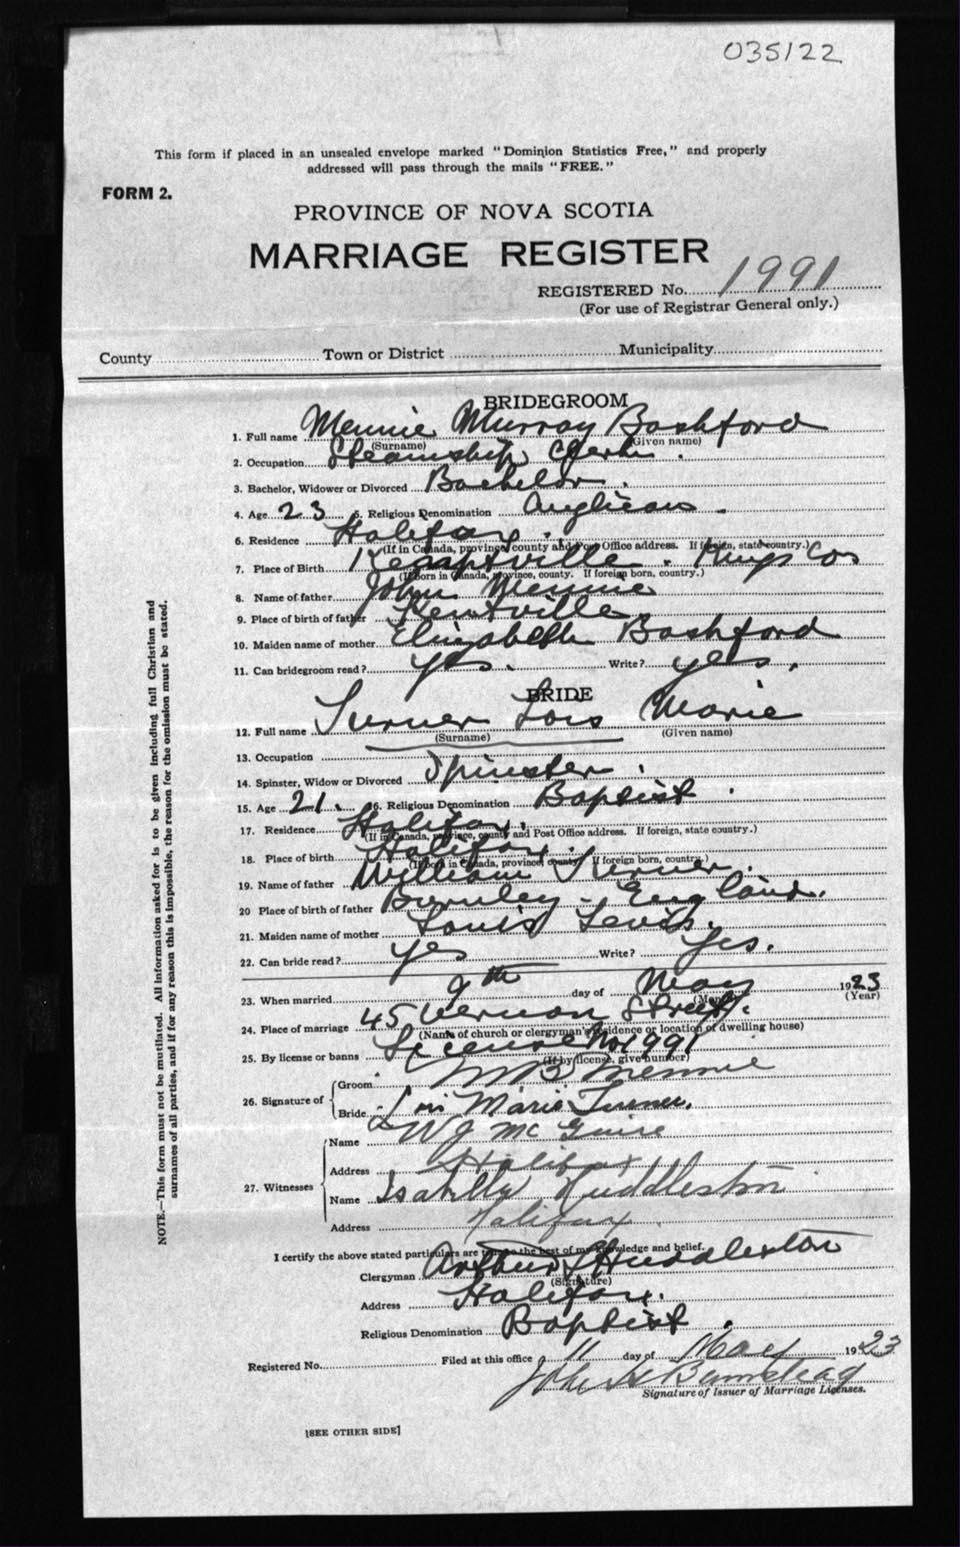 035122
This form if placed in an unsealed envelope marked "Dominion Statistics Free," and properly
addressed will pass through the mails "FREE."
FORM 2.
PROVINCE OF NOVA SCOTIA
MARRIAGE REGISTER
REGISTERED No. 1991
(For use of Registrar General only.)
County Town or District Municipality
BRIDEGROOM
1. Full name Mennie Murray Bashford
(Surname) (Given name)
2. Occupation Steamship Clerk.
3. Bachelor, Widower or Divorced Bachelor.
4. Age 23 5. Religious Denomination Anglican.
6. Residence Halifax.
(If in Canada, province, county and Post Office address. If foreign, state country.)
7. Place of Birth Kemptville. Kings Co
(If born in Canada, province, county. If foreign born, country.)
8. Name of father John Mennie
9. Place of birth of father Kentville
10. Maiden name of mother Elizabeth Bashford
11. Can bridegroom read? yes. Write? yes.
BRIDE
12. Full name Turner Lois Marie
(Surname) (Given name)
13. Occupation
14. Spinster, Widow or Divorced Spinster.
15. Age 21. 16. Religious Denomination Baptist.
17. Residence Halifax.
(If in Canada, province, county and Post Office address. If foreign, state country.)
18. Place of birth Halifax.
(If born in Canada, province, county. If foreign born, country.)
19. Name of father William Turner.
20 Place of birth of father Burnley - England.
21. Maiden name of mother Louis Levis.
22. Can bride read? yes Write? Yes.
23. When married 9th day of May 1923
(Month) (Year)
24. Place of marriage 45 Vernon Street.
(Name of church or clergyman's residence or location of dwelling house)
25. By license or banns License No 1991
(If by license, give number)
26. Signature of Groom M B Mennie
Bride Lois Marie Turner.
27. Witnesses Name W J McGuire
Address Halifax
Name Isabella Huddleston
Address Halifax.
I certify the above stated particulars are true to the best of my knowledge and belief.
Clergyman Arthur Huddleston
(Signature)
Address Halifax.
Religious Denomination Baptist.
Registered No. Filed at this office 11 day of May 1923
John Bumstead
Signature of Issuer of Marriage Licenses.
[SEE OTHER SIDE]
NOTE.—This form must not be mutilated. All information asked for is to be given including full Christian and
surnames of all parties, and if for any reason this is impossible, the reason for the omission must be stated.